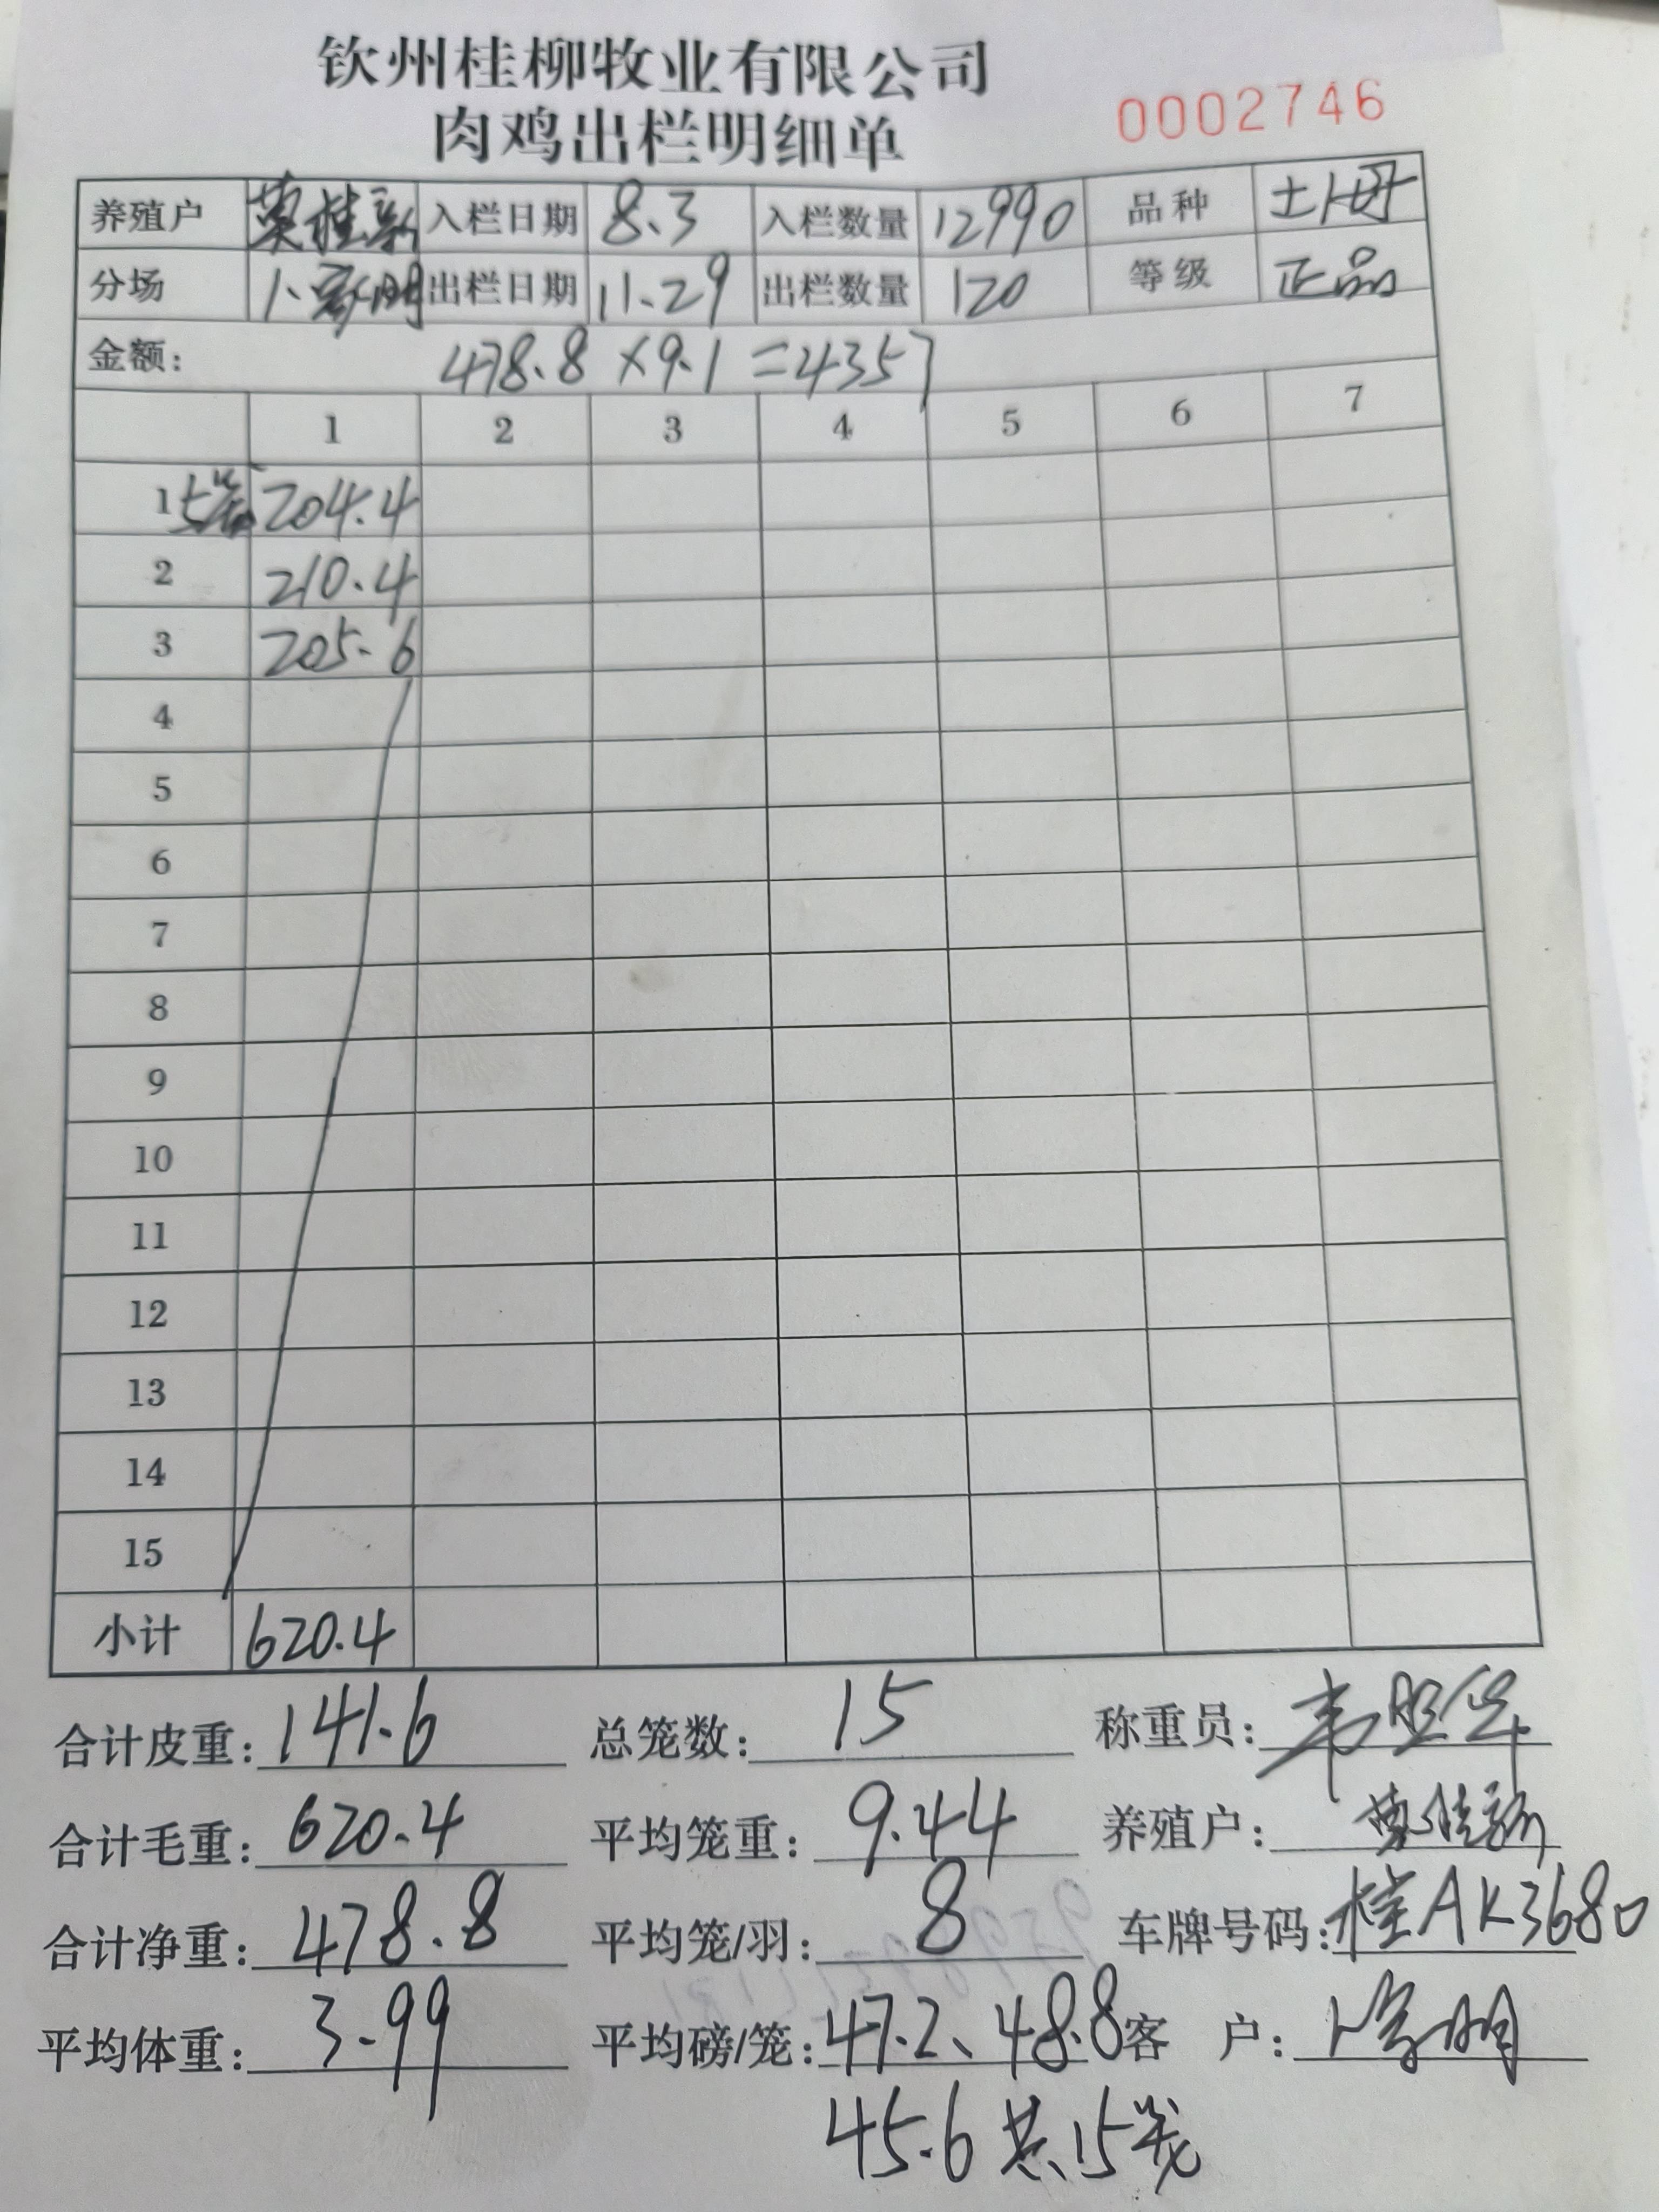 钦州桂柳牧业有限公司
肉鸡出栏明细单
0002746
养殖户 入栏日期 8.3 入栏数量 12990 品种 土1母
分场 出栏日期 11.29 出栏数量 120 等级 正品
金额: 478.8×9.1=4357
1 2 3 4 5 6 7
1 5笼 204.4
2 210.4
3 205.6
4
5
6
7
8
9
10
11
12
13
14
15
小计 620.4
合计皮重: 141.6 总笼数: 15 称重员:
合计毛重: 620.4 平均笼重: 9.44 养殖户:
合计净重: 478.8 平均笼/羽: 8 车牌号码: 桂AK3680
平均体重: 3.99 平均磅/笼: 47.2、48.8 客 户:
45.6 共15笼